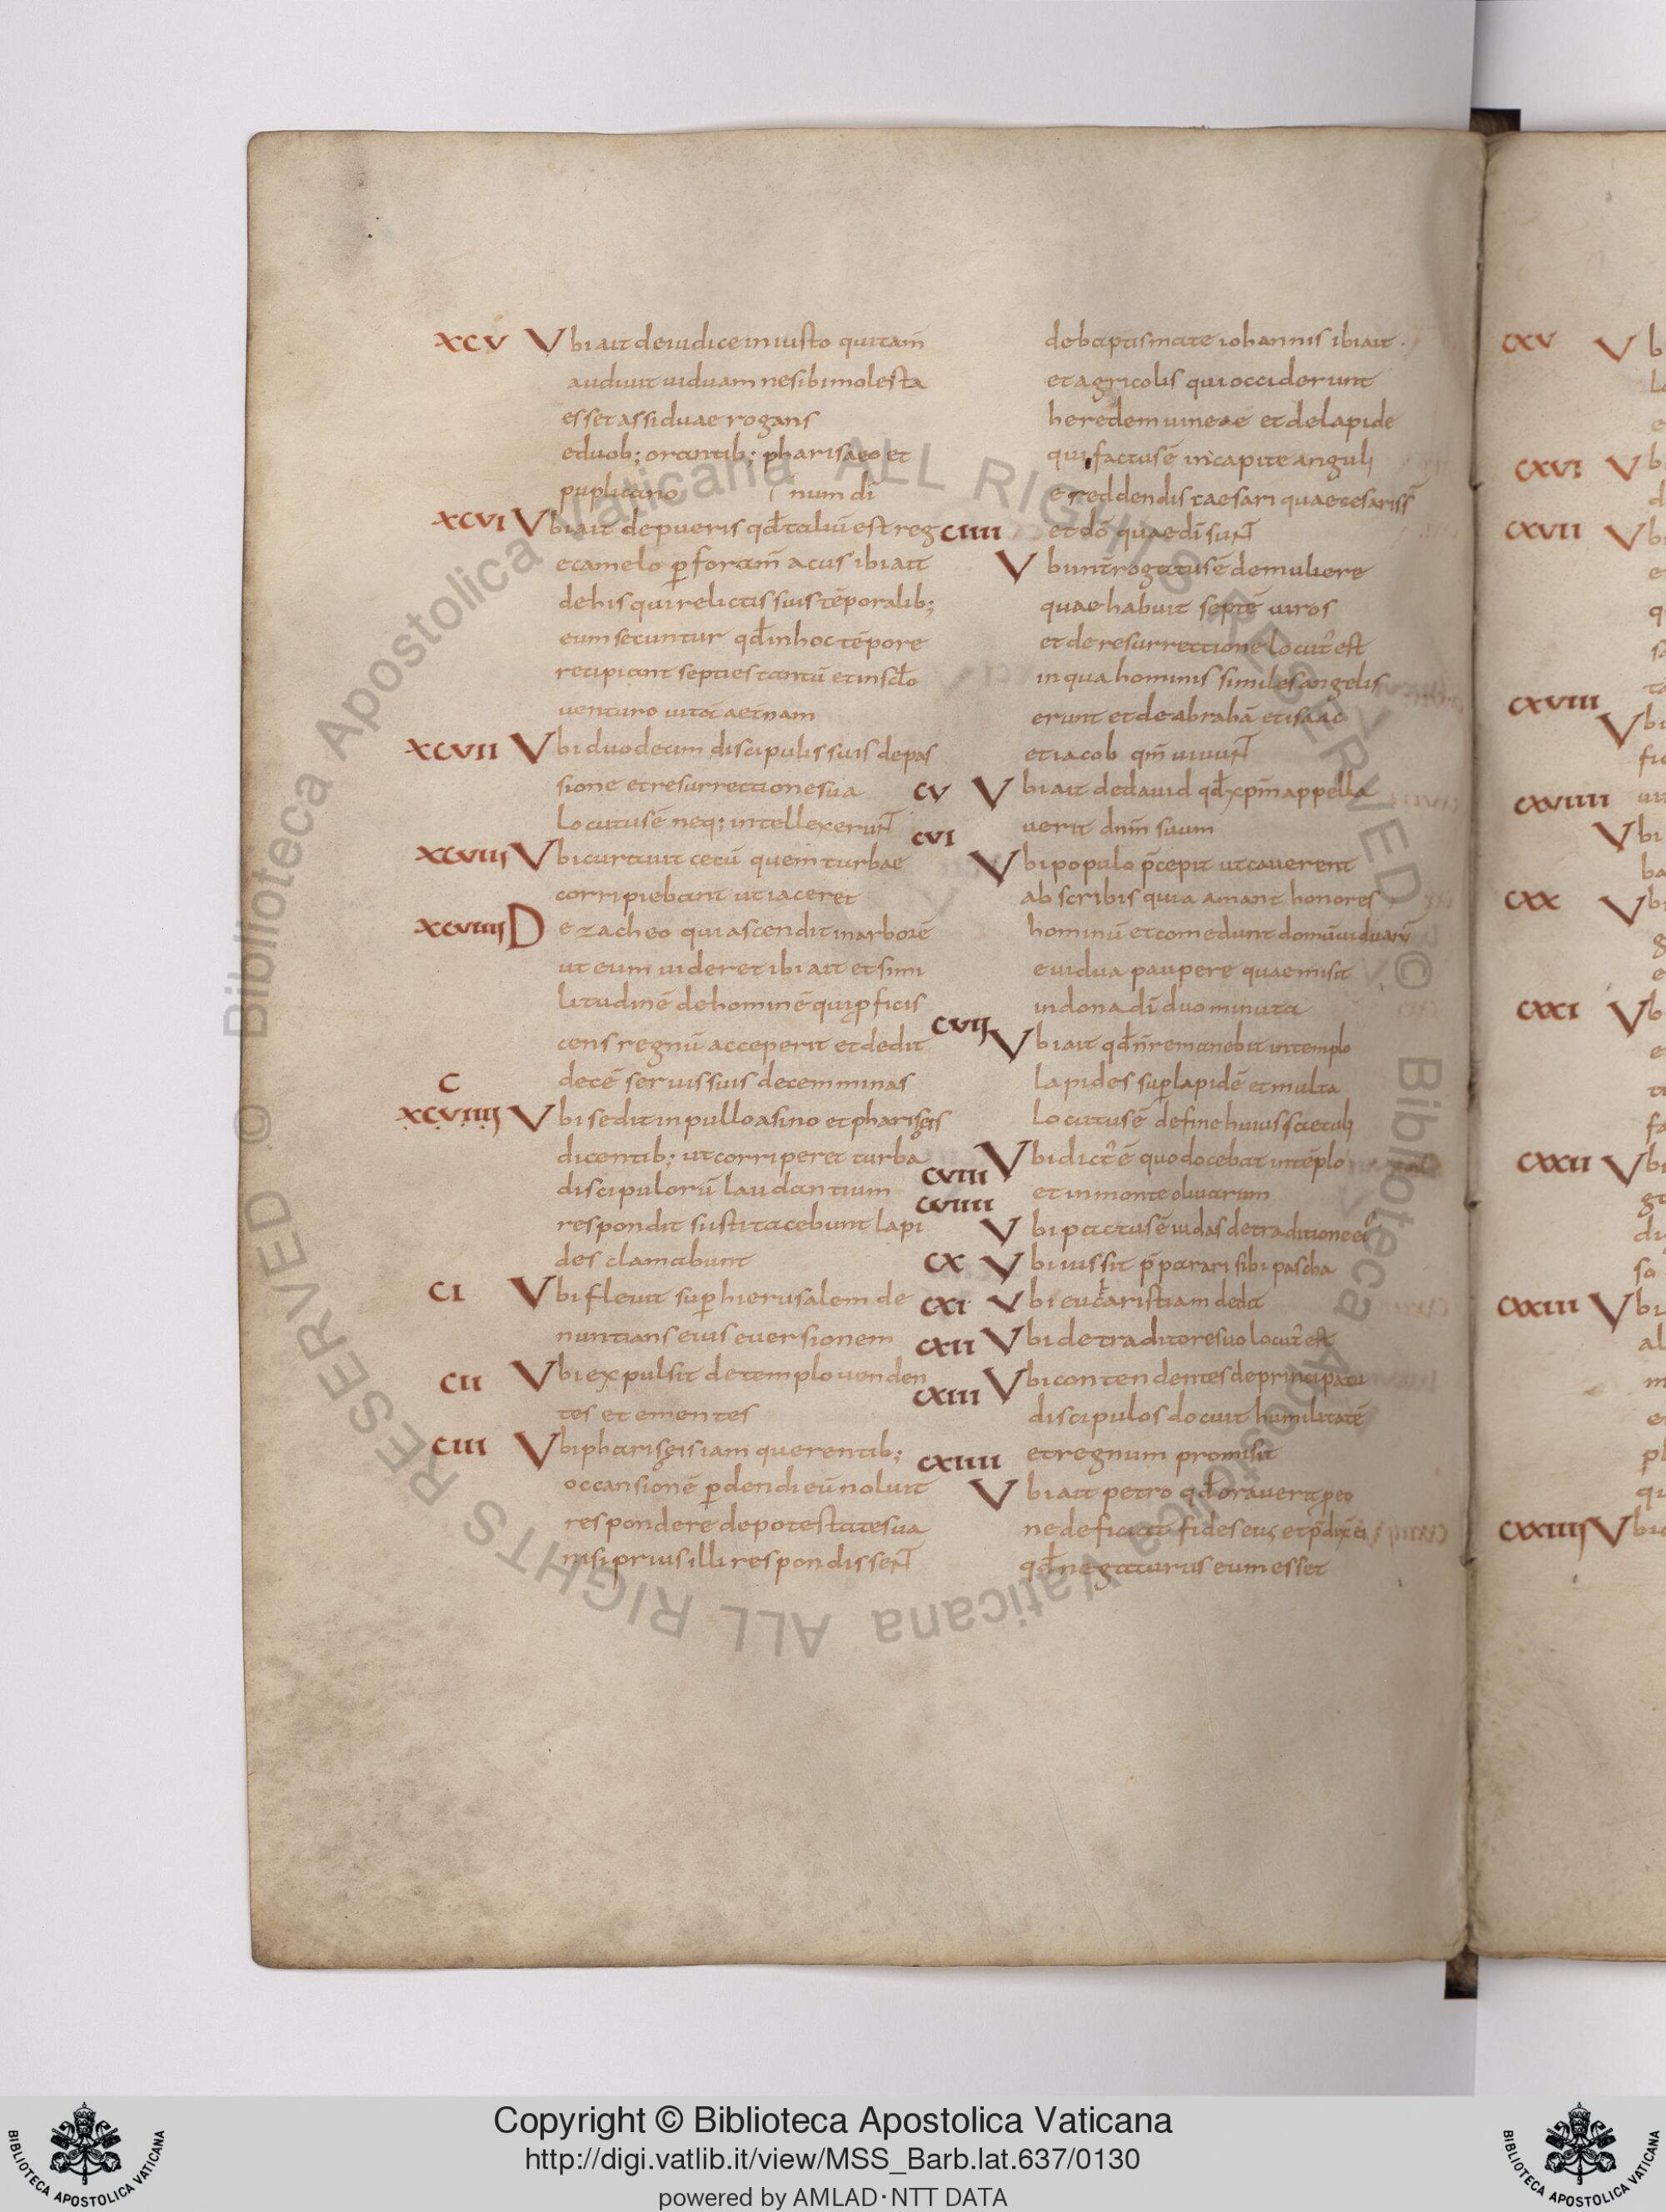 XCV Ubi ait de iudice iniusto qui tam̄
audiuit uiduam ne sibi molesta
esset assiduae rogans
e duob; orantib; pharisaeo et
puplicano num dī
XCVI Ubi ait de pueris qđ taliū est reg
e camelo ꝑ foram̄ acus ibi ait
de his qui relictis suis tēporalib;
eum secuntur qđ in hoc tēpore
recipiant septies tantū et in sclo
venturo uitā aet̄nam
XCVII Ubi duodecim discipulis suis de pas
sione et resurrectione sua
locutus ē neq; intellexerunt
XCVIII Ubi curauit cecū quem turbae
corripiebant ut iaceret
XCVIIII De zacheo qui ascendit in arborē
ut eum uideret ibi ait et simi
litudinē de hominē qui ꝓficis
cens regnū acceperit et dedit
C decē seruis suis decem minas
XCVIIII Ubi sedit in pullo asino et pharisęis
dicentib; ut corriperet turba
discipulorū laudantium
respondit si isti tacebunt lapi
des clamabunt
CI Ubi fleuit suꝑ hierusalem de
nuntians eius euersionem
CII Ubi expulsit de templo uenden
tes et ementes
CIII Ubi pharisęis iam querentib;
occansionē ꝑdendi eū noluit
respondere de potestate sua
nisi prius illi respondissent
de baptismate iohannis ibi ait
et agricolis qui occiderunt
heredem uineae et de lapide
qui factus ē in capite anguli
e reddendis caesari quae cesaris s̄
CIIII et dō quae dī sunt
Ubi int̄rogatus ē de muliere
quae habuit septē uiros
et de resurrectione locut᾽ est
in qua hominis similes angelis
erunt et de abrahā et isaac
et iacob qm̄ uiuunt
CV Ubi ait de dauid qđ xpm̄ appella
uerit dnm̄ suum
CVI Ubi populo p̄cepit ut cauerent
ab scribis quia amant honores
hominū et comedunt domū uiduarū
e uidua paupere quae misit
in dona dī duo minuta
CVII Ubi ait qđ n̄ remanebit in templo
lapides suꝑ lapidē et multa
locutus ē de fine huius saeculi
CVIII Ubi dict᾽ ē quo docebat in tēplo
et in monte oliuarum
CVIIII Ubi pactus ē iudas de traditione ei᾽
CX Ubi iussit p̄parari sibi pascha
CXI Ubi eucharistiam dedit
CXII Ubi de traditore suo locut᾽ est
CXIII Ubi contendentes de principatu
discipulos docuit humilitatē
et regnum promisit
CXIIII Ubi ait petro qđ orauerit ꝓ eo
ne deficiat fides eius et p̄dix̄ ei
qđ negaturus eum esset
CXV
CXVI
CXVII
CXVIII
CXVIIII
CXX
CXXI
CXXII
CXXIII
CXXIIII
© Biblioteca Apostolica Vaticana ALL RIGHTS RESERVED © Biblioteca Apostolica Vaticana ALL RIGHTS RESERVED
Copyright © Biblioteca Apostolica Vaticana
http://digi.vatlib.it/view/MSS_Barb.lat.637/0130
powered by AMLAD・NTT DATA
BIBLIOTECA APOSTOLICA VATICANA
BIBLIOTECA APOSTOLICA VATICANA